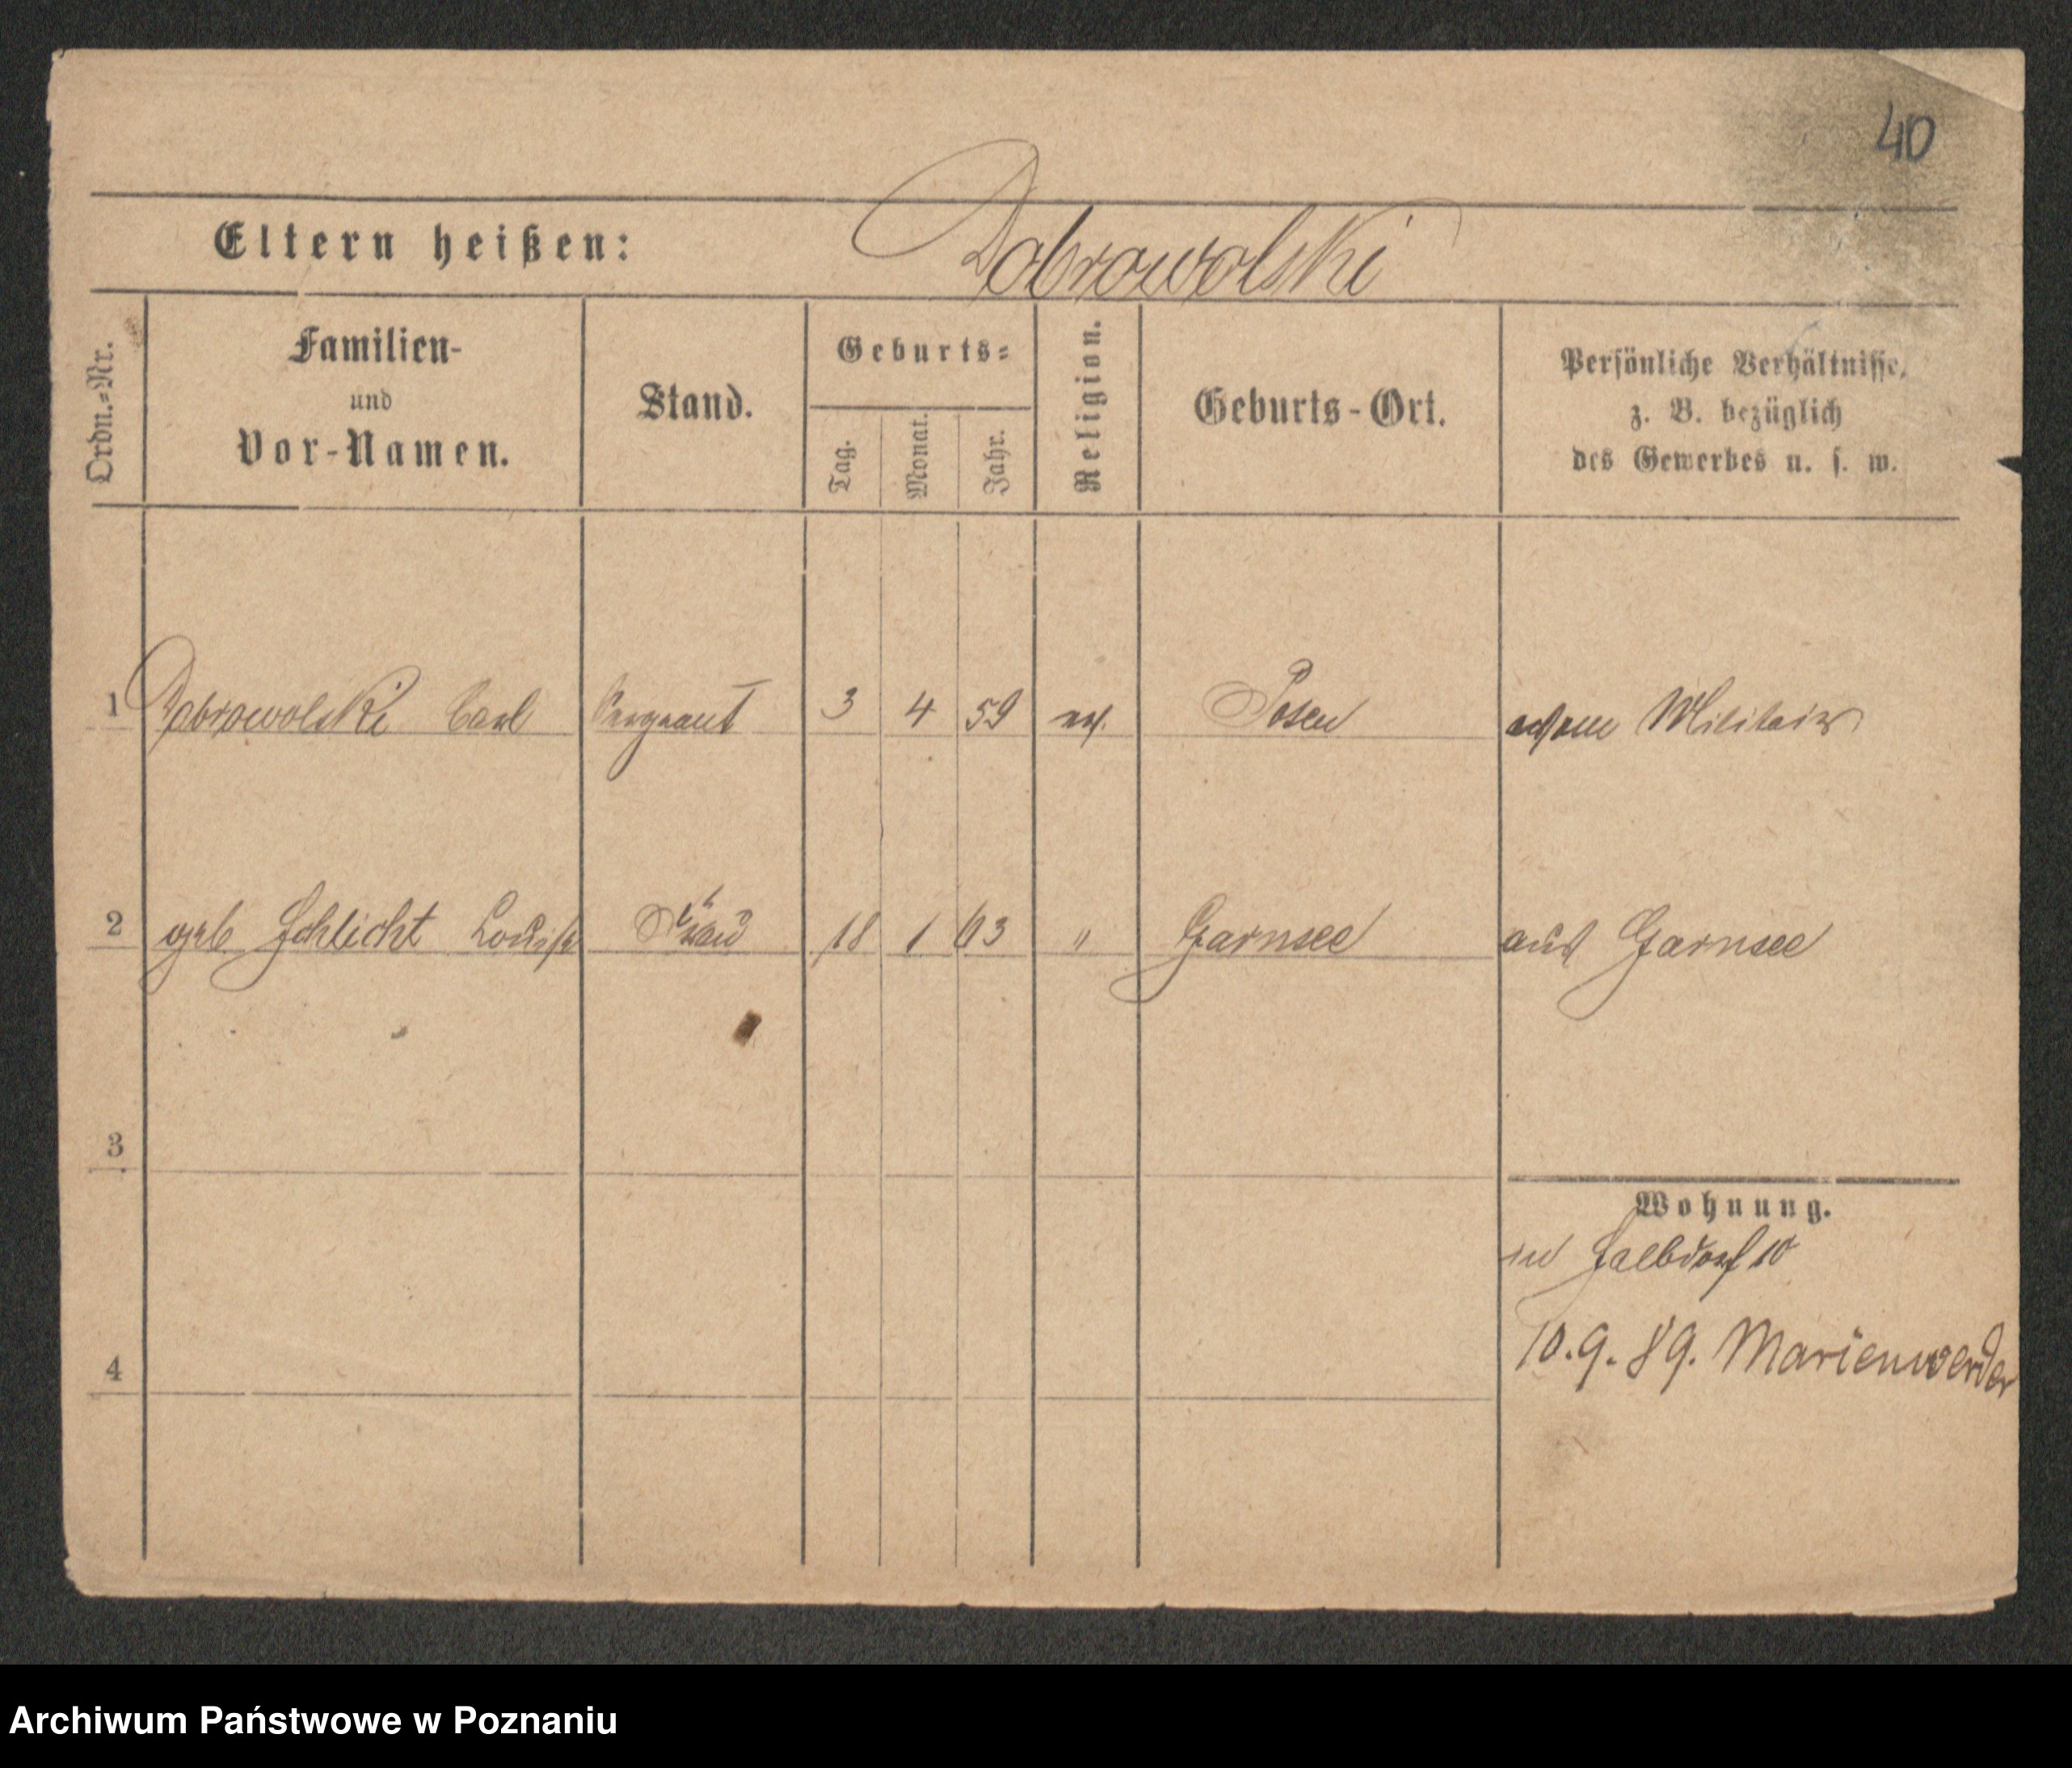 40
Eltern heißen: Dobrowolski
Ordn.-Nr.
Familien-
und
Vor-Namen.
Stand.
Geburts-
Tag.
Monat.
Jahr.
Religion.
Geburts-Ort.
Persönliche Verhältnisse,
z. B. bezüglich
des Gewerbes u. s. w.
1 Dobrowolski Carl Sergeant 3 4 59 ev. Posen vom Militair
2 geb Schlicht Louise Frau 18 1 63 " Garnsee aus Garnsee
3
Wohnung.
in Halbdorf 10
4
10.9.89. Marienwerder
Archiwum Państwowe w Poznaniu